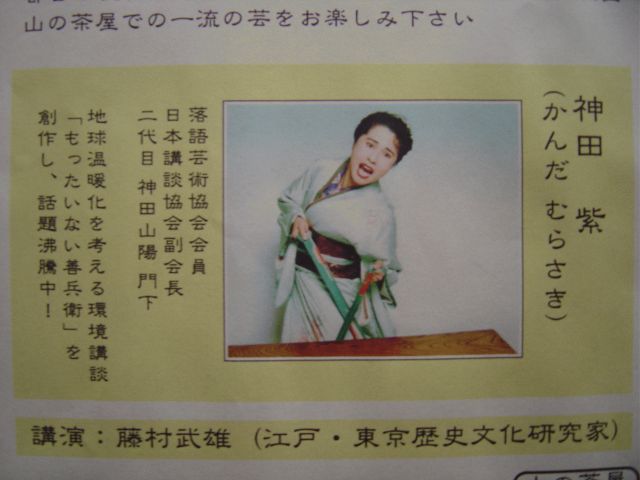 山の茶屋での一流の芸をお楽しみ下さい
神田 紫
(かんだ むらさき)
落語芸術協会会員
日本講談協会副会長
二代目 神田山陽 門下
地球温暖化を考える環境講談
「もったいない善兵衛」を
創作し、話題沸騰中！
講演：藤村武雄 (江戸・東京歴史文化研究家)
山の茶屋